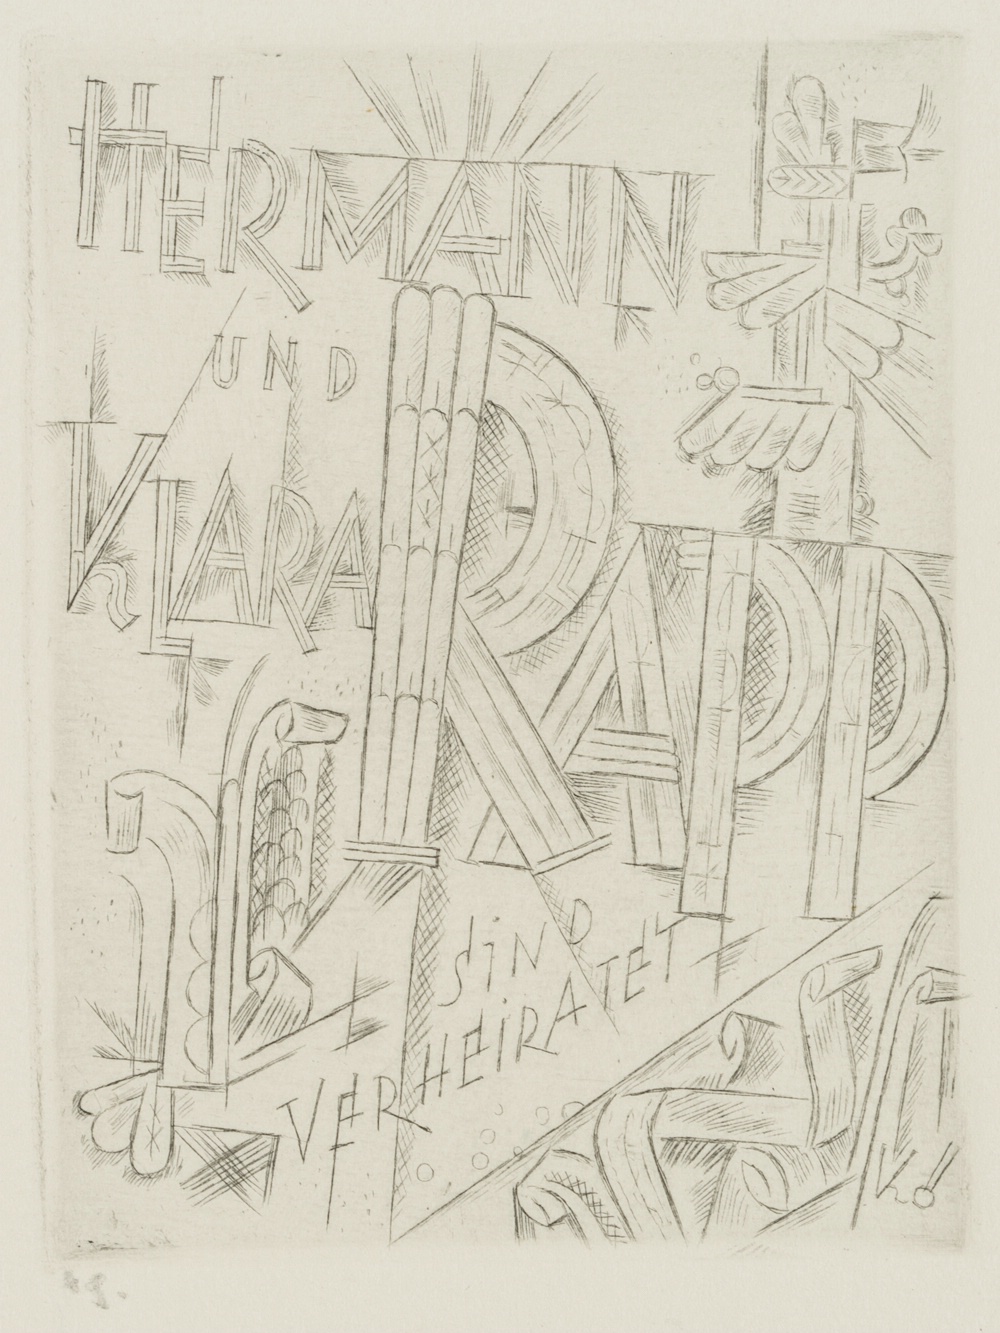 HERMANN
UND
KLARA
RAPP
SIND
VERHEIRATET